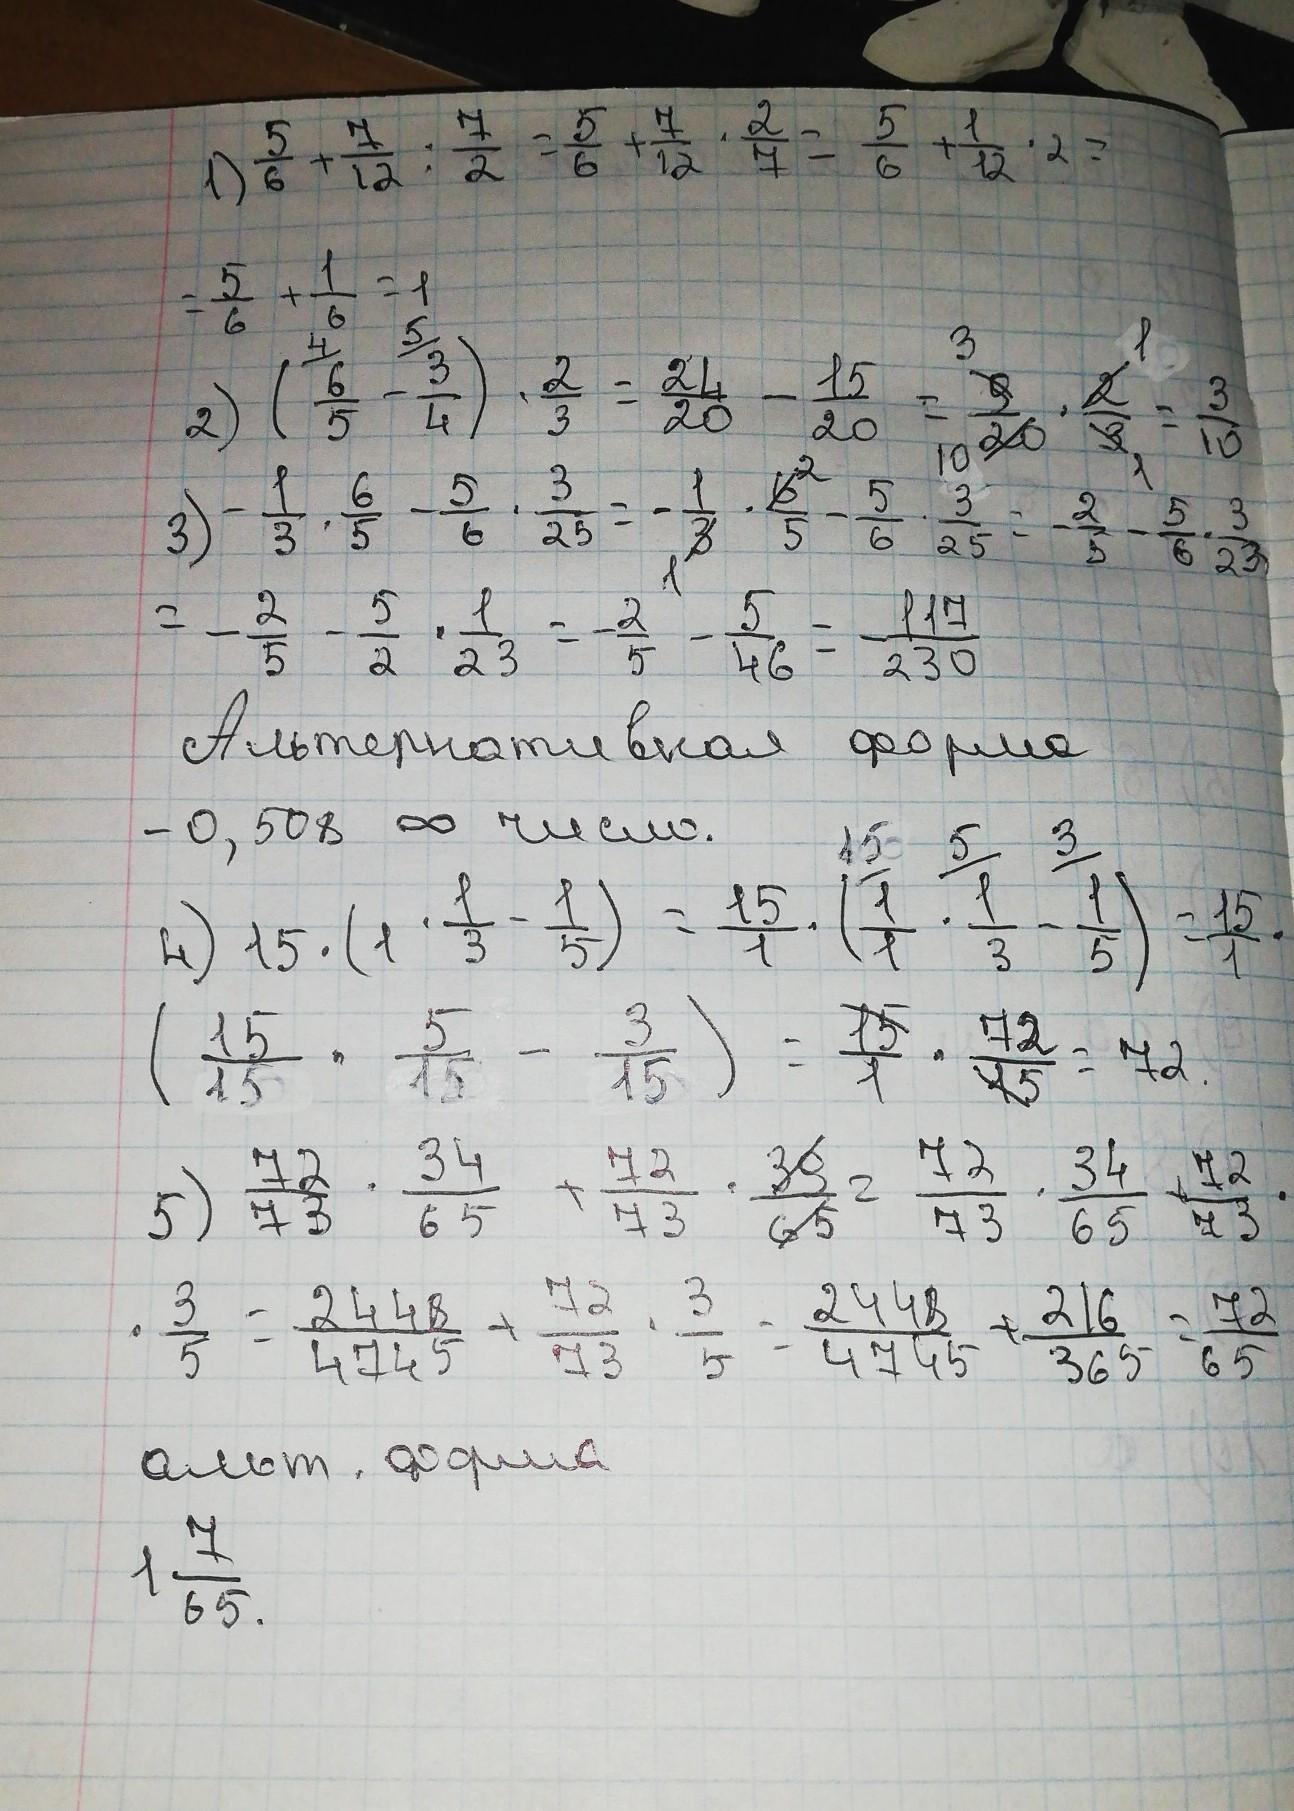 1) 5/6 + 7/12 : 7/2 = 5/6 + 7/12 · 2/7 = 5/6 + 1/12 · 2 =
= 5/6 + 1/6 = 1
2) (4/ 6/5 - 5/ 3/4) · 2/3 = 24/20 - 15/20 = 3 9/20 10 · 2/3 1 1 = 3/10
3) - 1/3 · 6/5 - 5/6 · 3/25 = - 1/3 1 · 6/5 2 - 5/6 · 3/25 = - 2/5 - 5/6 · 3/23
= - 2/5 - 5/2 · 1/23 = - 2/5 - 5/46 = - 117/230
Альтернативная форма
-0,508 ∞ число.
4) 15 · (1 · 1/3 - 1/5) = 15/1 · (15/ 1/1 · 5/ 1/3 - 3/ 1/5) = 15/1 ·
(15/15 · 5/15 - 3/15) = 15/1 · 72/15 = 72.
5) 72/73 · 34/65 + 72/73 · 39/65 = 72/73 · 34/65 + 72/73 ·
· 3/5 = 2448/4745 + 72/73 · 3/5 = 2448/4745 + 216/365 = 72/65
альт. форма
1 7/65.